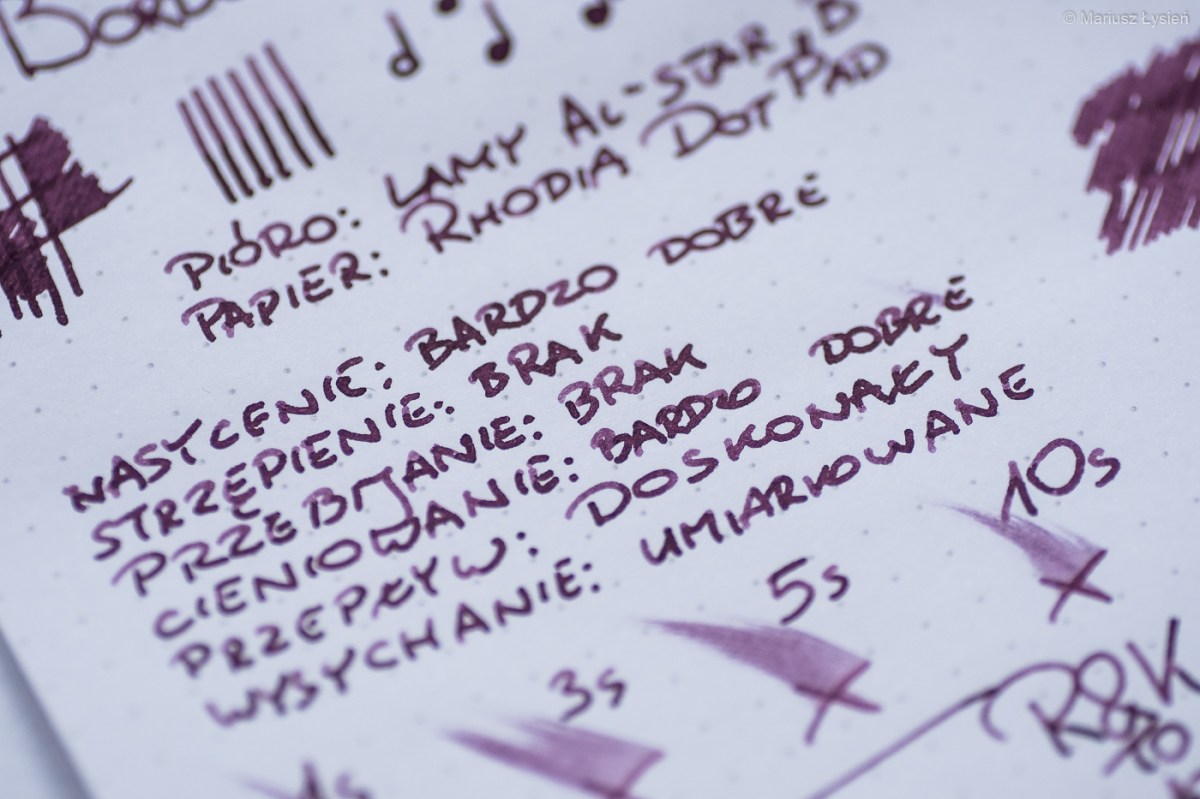 © Mariusz Łysień
PIÓRO: LAMY AL-STAR, B
PAPIER: RHODIA DOT PAD
NASYCENIE: BARDZO DOBRE
STRZĘPIENIE: BRAK
PRZEBIJANIE: BRAK
CIENIOWANIE: BARDZO DOBRE
PRZEPŁYW: DOSKONAŁY
WYSYCHANIE: UMIARKOWANE
10s
5s
3s
1s
R&K